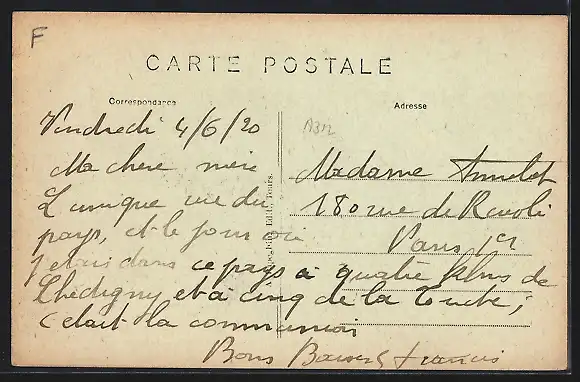 F
CARTE POSTALE
Correspondance
Adresse
Vendredi 4/6/20
A312
Ma chère mère
L'unique vue du
pays, et le jour où
j'étais dans ce pays à quatre klms de
Chédigny et à cinq de la
c'était la communion
Bons Baisers Francis
Madame
180 rue de Rivoli
Paris 1er
Edit. Tours.